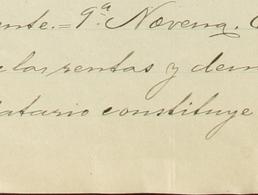 ente.=9.ª Novena. C
e las rentas y dem
datario constituye